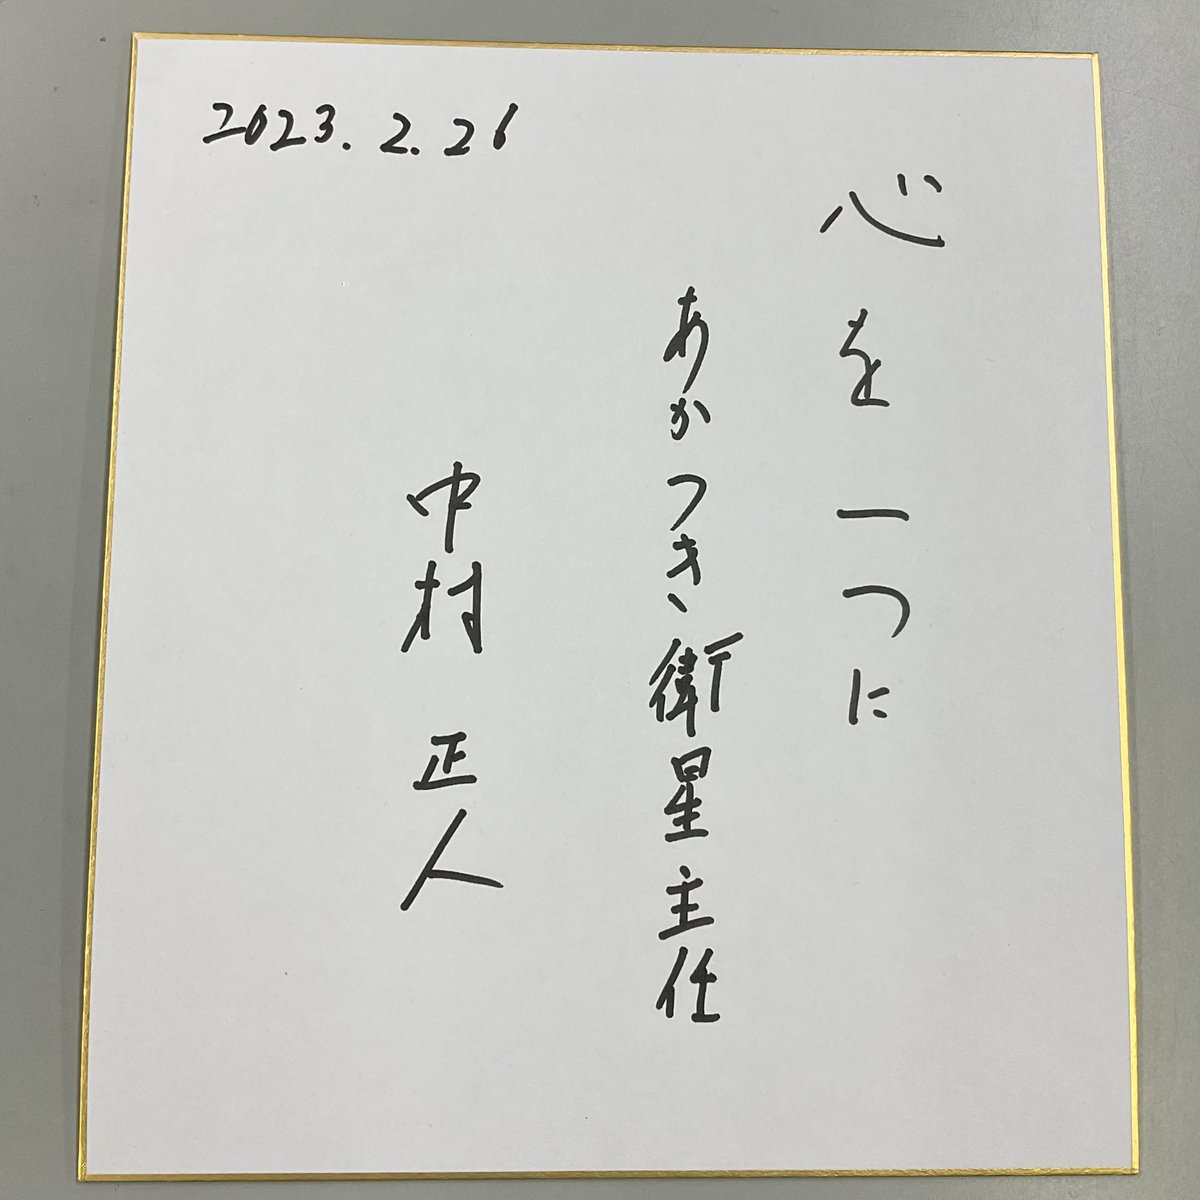 2023.2.26
心を一つに
あかつき衛星主任
中村 正人